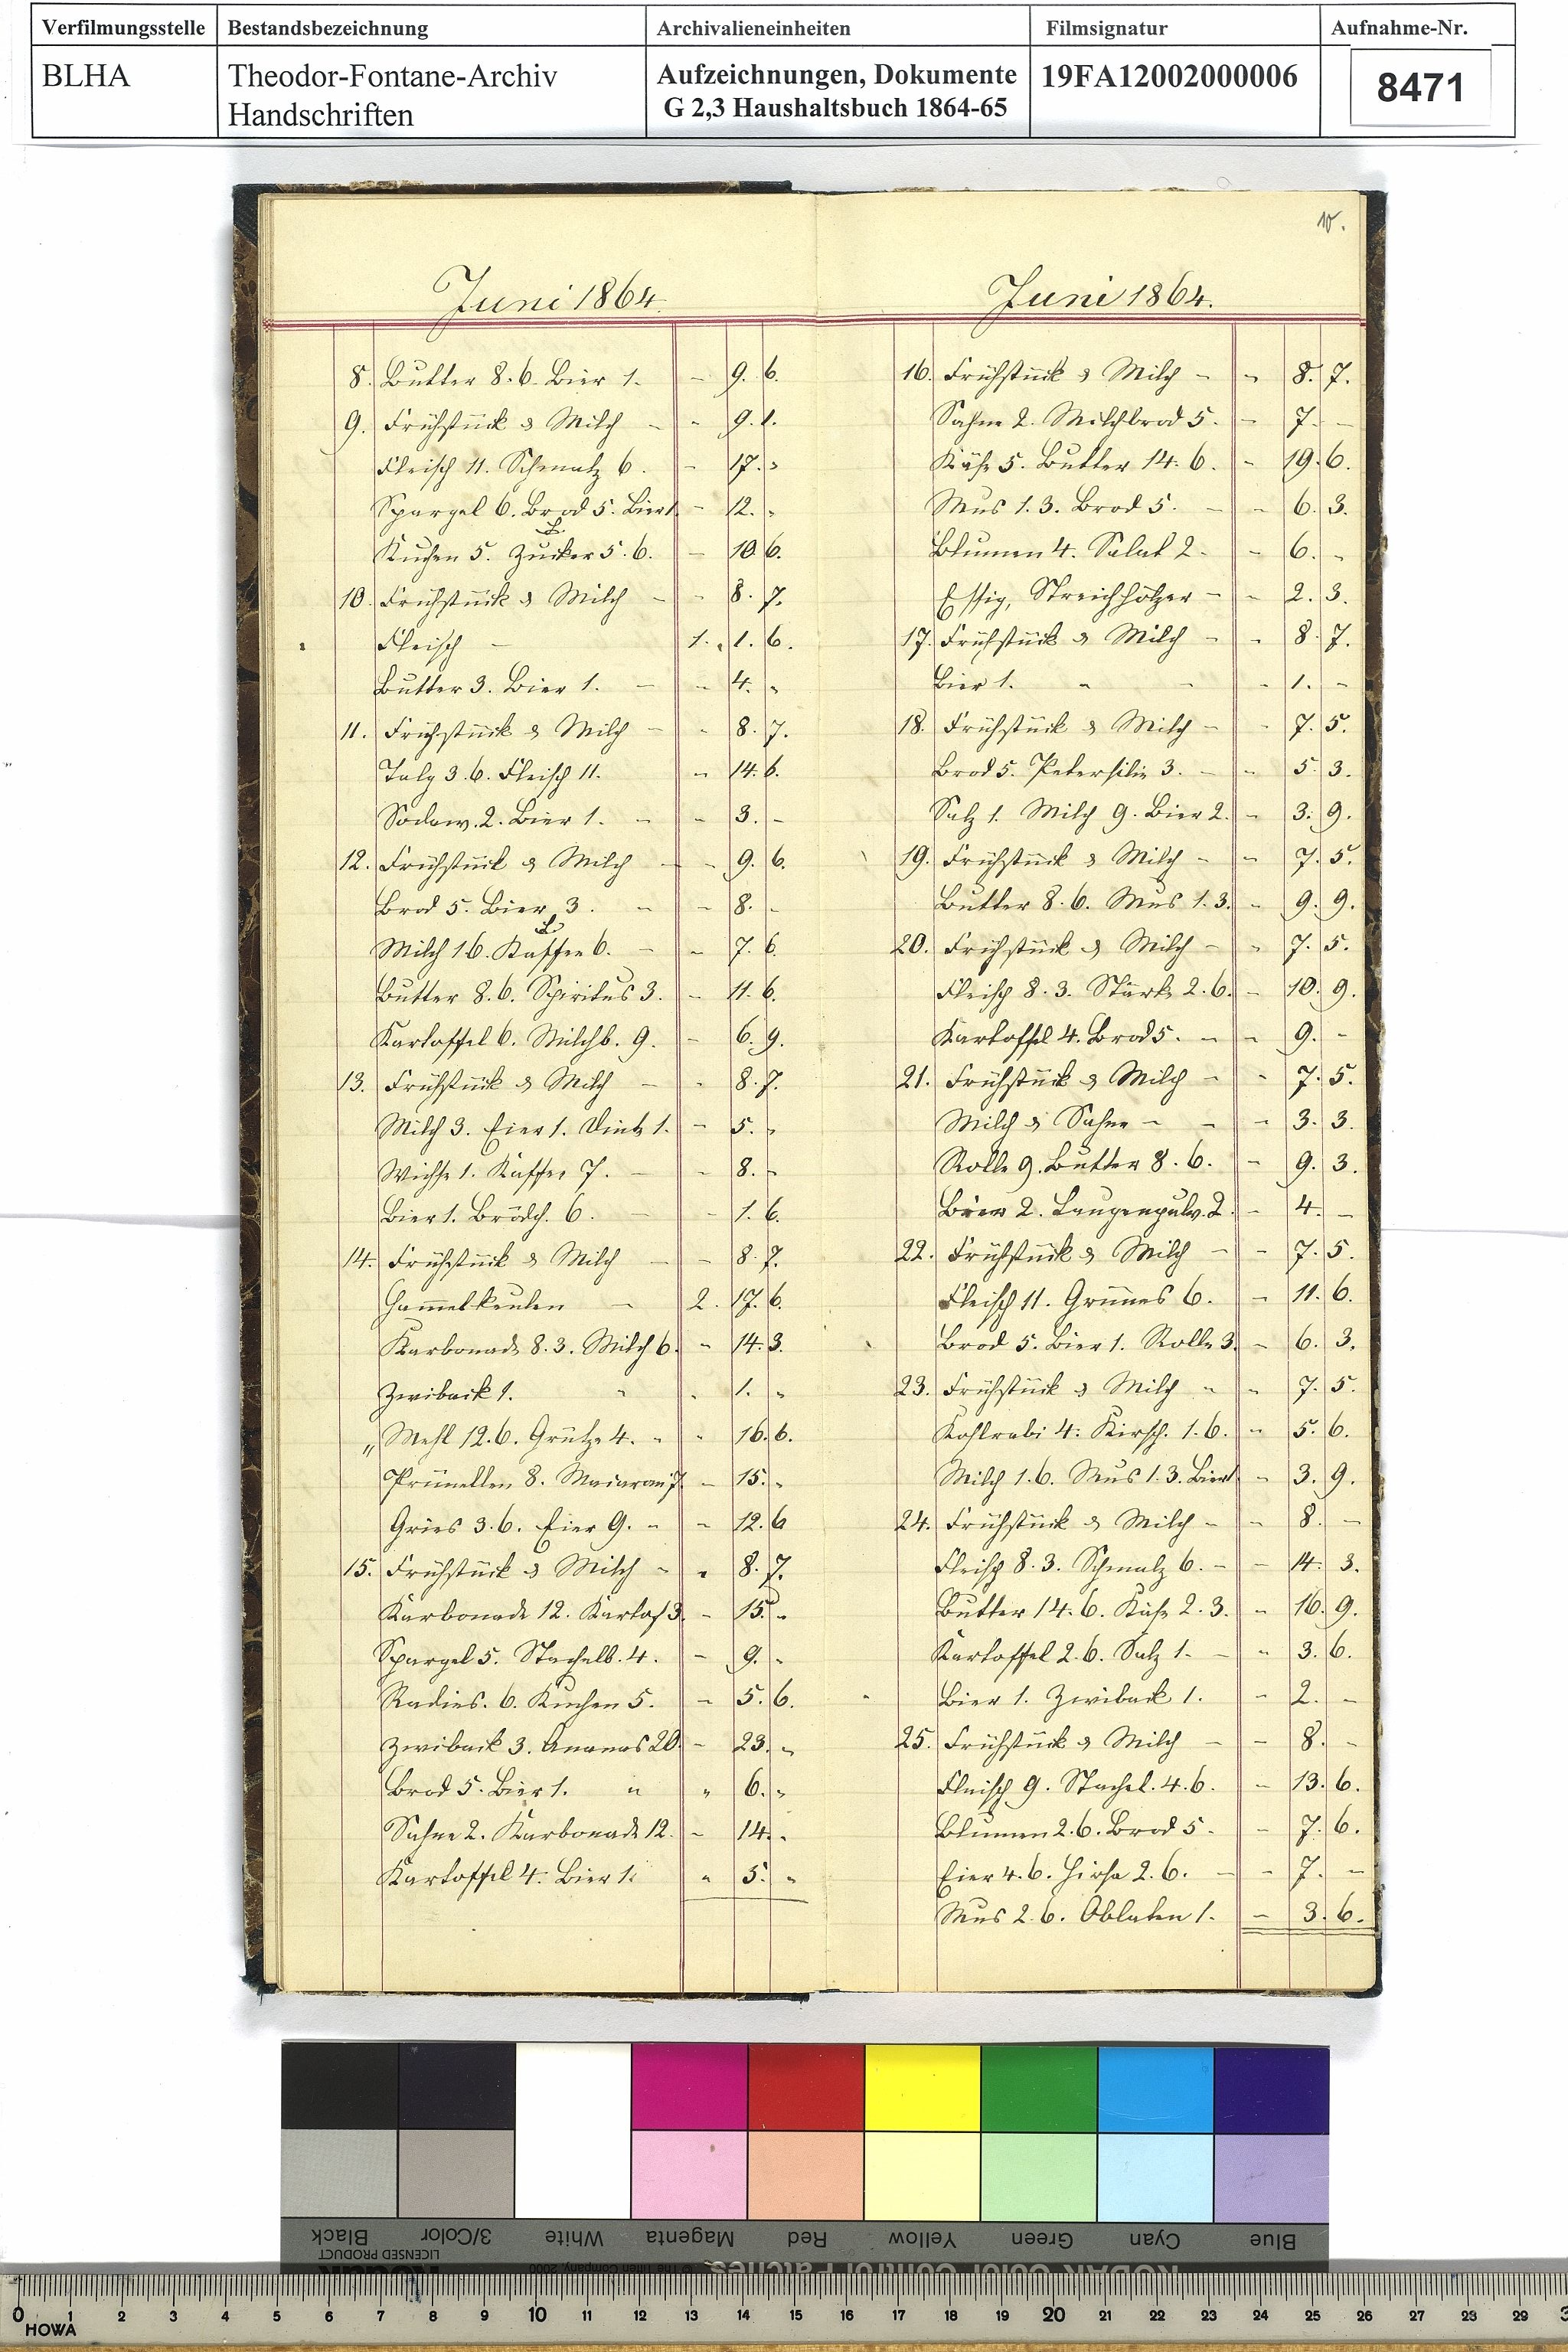 Verfilmungsstelle Bestandsbezeichnung Archivalieneinheiten Filmsignatur Aufnahme-Nr.
BLHA Theodor-Fontane-Archiv Aufzeichnungen, Dokumente 19FA12002000006 8471
Handschriften G 2,3 Haushaltsbuch 1864-65
10.
Juni 1864.
8. Butter 8.6. Bier 1. - 9. 6.
9. Frühstück & Milch - - 9. 1.
Fleisch 11. Schmalz 6. - 17. -
Spargel 6. Brod 5. Bier 1. - 12. -
Kuchen 5. Zucker 5.6. - 10. 6.
10. Frühstück & Milch - - 8. 7.
Fleisch - 1. 1. 6.
Butter 3. Bier 1. - - 4. -
11. Frühstück & Milch - - 8. 7.
Talg 3.6. Fleisch 11. - 14. 6.
Sodaw. 2. Bier 1. - - 3. -
12. Frühstück & Milch - - 9. 6.
Brod 5. Bier 3. - - 8. -
Milch 16. Kaffee 6. - - 7. 6.
Butter 8.6. Spiritus 3. - 11. 6.
Kartoffel 6. Milchb. 9. - 6. 9.
13. Frühstück & Milch - - 8. 7.
Milch 3. Eier 1. 1. - 5. -
Wichse 1. Kaffee 7. - - 8. -
Bier 1. Brödch. 6. - - 1. 6.
14. Frühstück & Milch - - 8. 7.
Hammelkeulen - 2. 17. 6.
Karbonade 8.3. Milch 6. - 14. 3.
Zwiback 1. - - 1. -
" Mehl 12.6. Grütze 4. - - 16. 6.
Prünellen 8. Maiaran 7. - 15. -
Gries 3.6. Eier 9. - - 12. 6
15. Frühstück & Milch - - 8. 7.
Karbonade 12. Kartof 3. - 15. -
Spargel 5. Stachelb. 4. - 9. -
Radies. 6. Kuchen 5. - 5. 6.
Zwiback 3. Ananas 20. - 23. -
Brod 5. Bier 1. " " 6. -
Sahne 2. Karbonade 12. - 14. -
Kartoffel 4. Bier 1. - 5. -
Juni 1864.
16. Frühstück & Milch - - 8. 7.
Sahne 2. Milchbrod 5. - 7. -
Käse 5. Butter 14.6. - 19. 6.
Mus 1.3. Brod 5. - - 6. 3.
Blumen 4. Salat 2. - 6. -
Essig, Streichhölzer - - 2. 3.
17. Frühstück & Milch - - 8. 7.
Bier 1. - - - 1. -
18. Frühstück & Milch - - 7. 5.
Brod 5. Petersilie 3. - - 5. 3.
Salz 1. Milch 9. Bier 2. - 3. 9.
19. Frühstück & Milch - - 7. 5.
Butter 8.6. Mus 1.3. - 9. 9.
20. Frühstück & Milch - - 7. 5.
Fleisch 8.3. Stärke 2.6. - 10. 9.
Kartoffel 4. Brod 5. - - 9. -
21. Frühstück & Milch - - 7. 5.
Milch & Sahne - - - 3. 3.
Rolle 9. Butter 8.6. - 9. 3.
Bier 2. Laugenpulv. 2. - 4. -
22. Frühstück & Milch - - 7. 5.
Fleisch 11. Grünes 6. - 11. 6.
Brod 5. Bier 1. Rolle 3. - 6. 3.
23. Frühstück & Milch - - 7. 5.
Kohlrabi 4. Kirsch. 1.6. - 5. 6.
Milch 1.6. Mus 1.3. Bier 1 - 3. 9.
24. Frühstück & Milch - - 8. -
Fleisch 8.3. Schmalz 6. - - 14. 3.
Butter 14.6. Käse 2.3. - 16. 9.
Kartoffel 2.6. Salz 1. - - 3. 6.
Bier 1. Zwiback 1. - 2. -
25. Frühstück & Milch - - 8. -
Fleisch 9. Stachel. 4.6. - 13. 6.
Blumen 2.6. Brod 5. - 7. 6.
Eier 4.6. Hirse 2.6. - - 7. -
Mus 2.6. Oblaten 1. - 3. 6.
Black 3/Color White Magenta Red Yellow Green Cyan Blue
LICENSED PRODUCT
Kodak © The Tiffen Company, 2000 KODAK Color Control Patches
0 1 2 3 4 5 6 7 8 9 10 11 12 13 14 15 16 17 18 19 20 21 22 23 24 25 26 27 28 29
HOWA